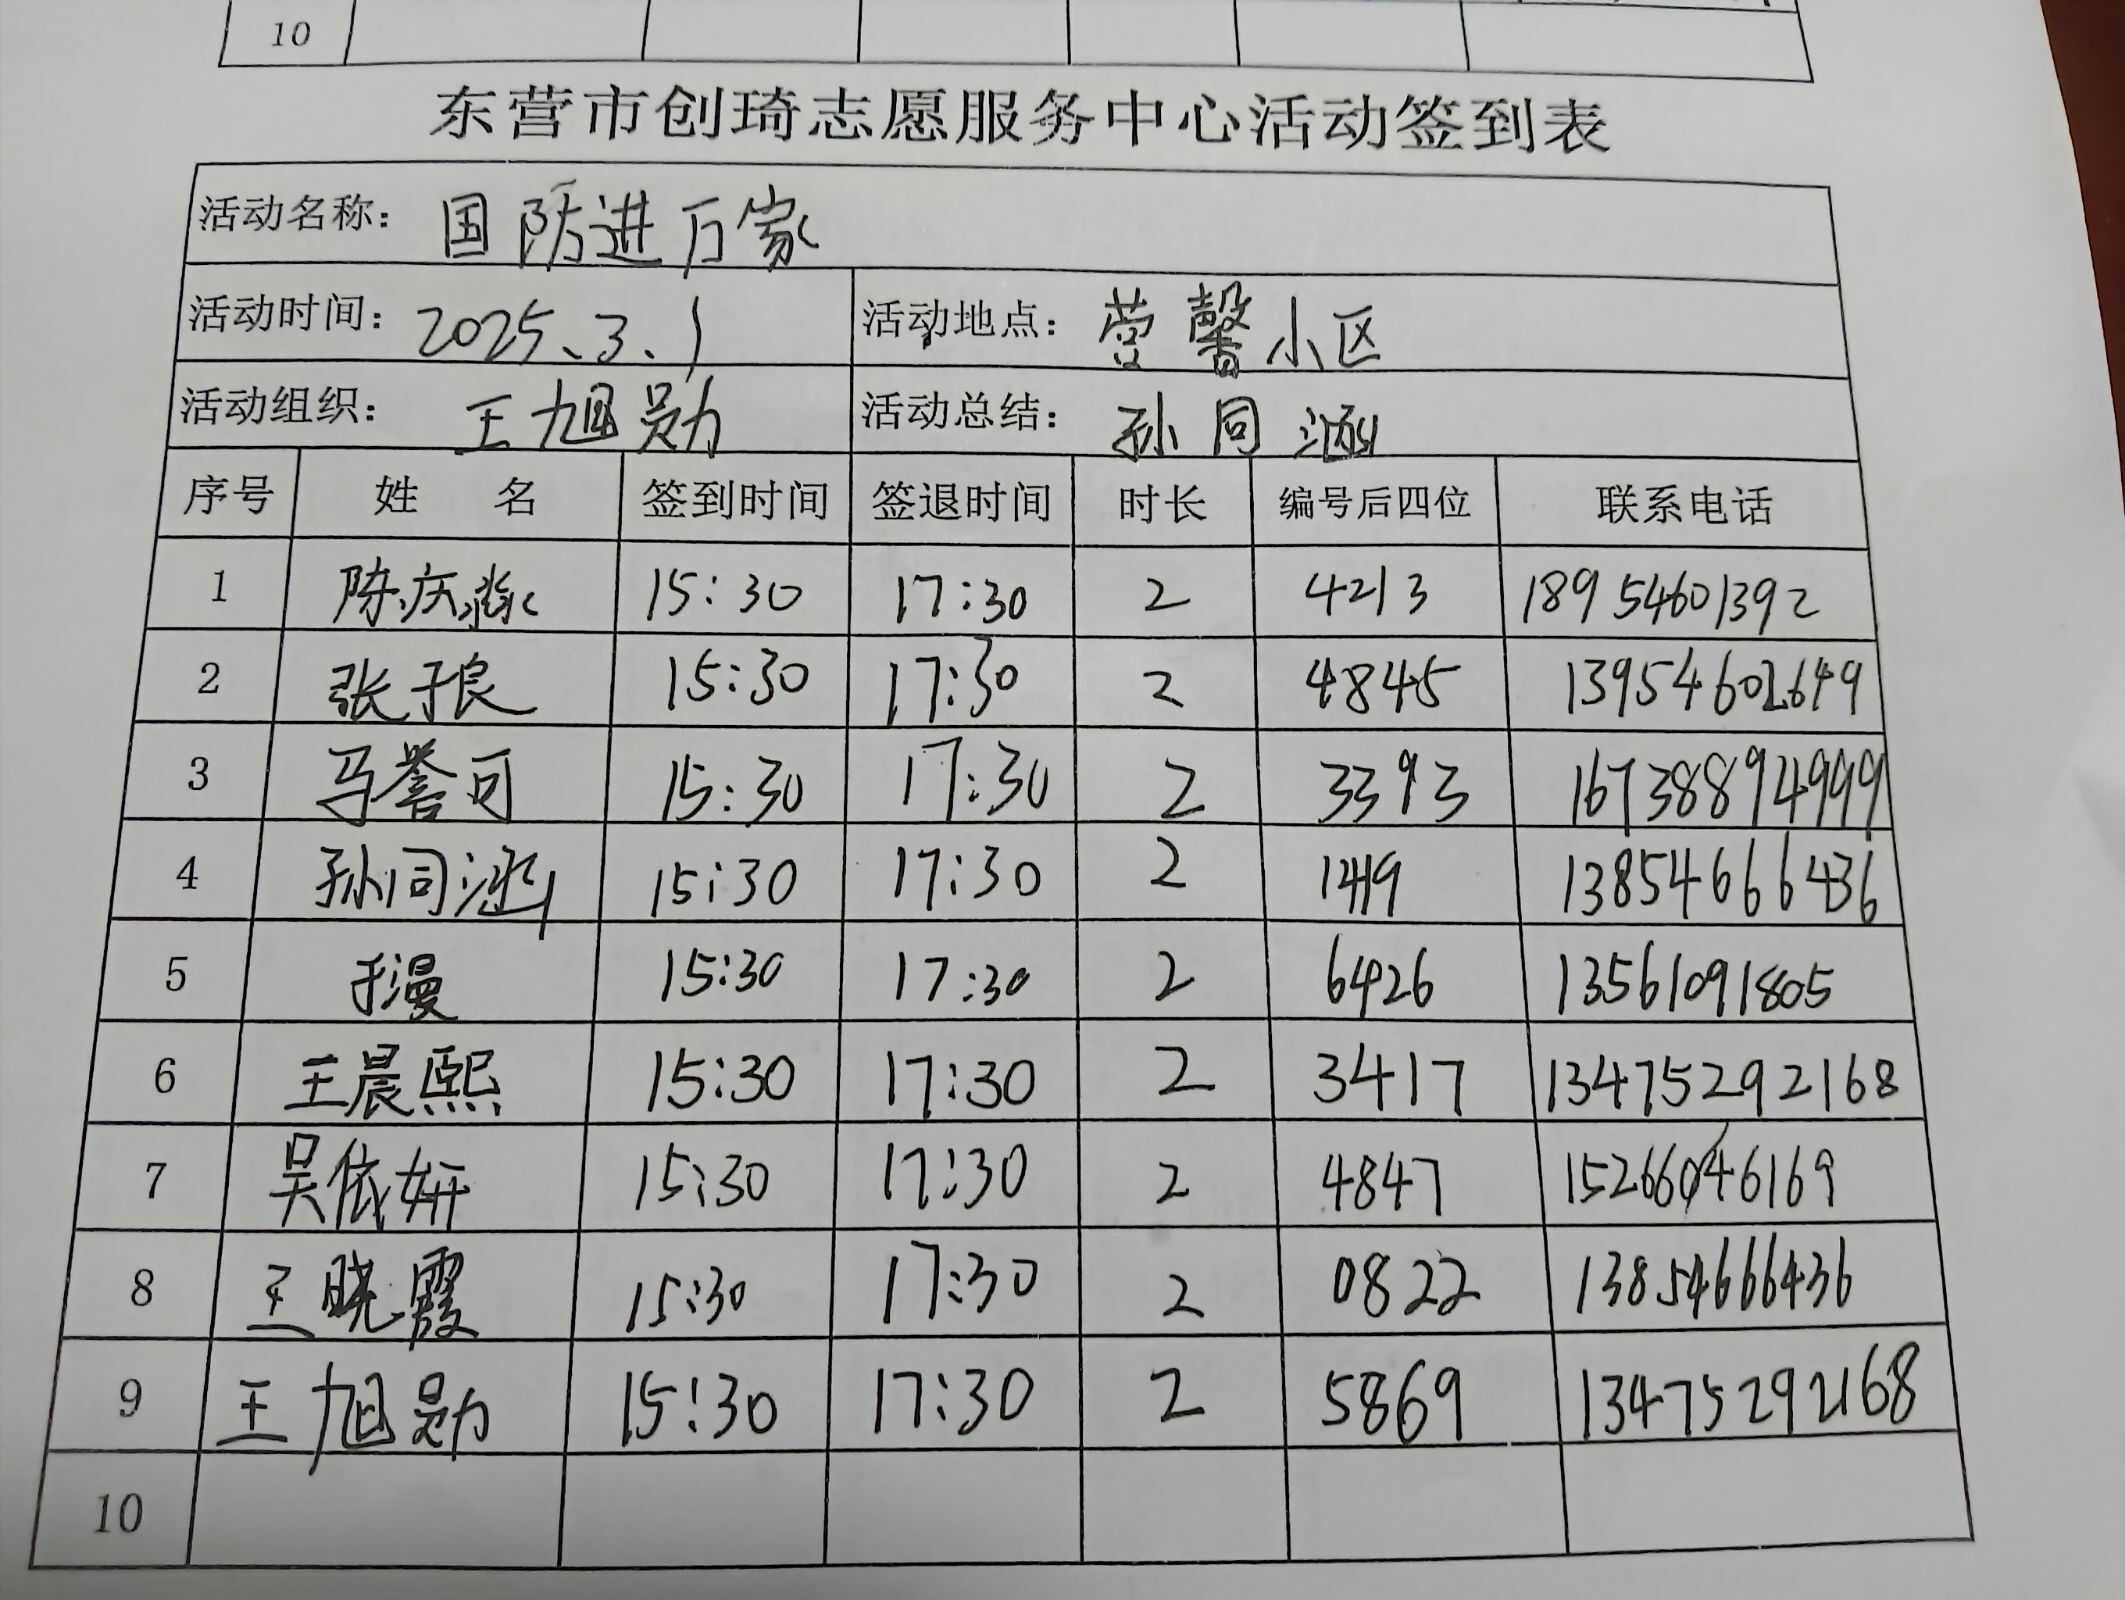 10
东营市创琦志愿服务中心活动签到表
活动名称: 国防进万家
活动时间: 2025、3、1 活动地点: 营馨小区
活动组织: 王旭勋 活动总结: 孙同涵
序号 姓 名 签到时间 签退时间 时长 编号后四位 联系电话
1 陈庆淼 15:30 17:30 2 4213 18954601392
2 张于良 15:30 17:30 2 4845 13954602649
3 马誉可 15:30 17:30 2 3393 16738894999
4 孙同涵 15:30 17:30 2 1419 13854666436
5 于漫 15:30 17:30 2 6426 13561091805
6 王晨熙 15:30 17:30 2 3417 13475292168
7 吴依妍 15:30 17:30 2 4847 15266046169
8 王晓霞 15:30 17:30 2 0822 13854666436
9 王旭勋 15:30 17:30 2 5869 13475292168
10